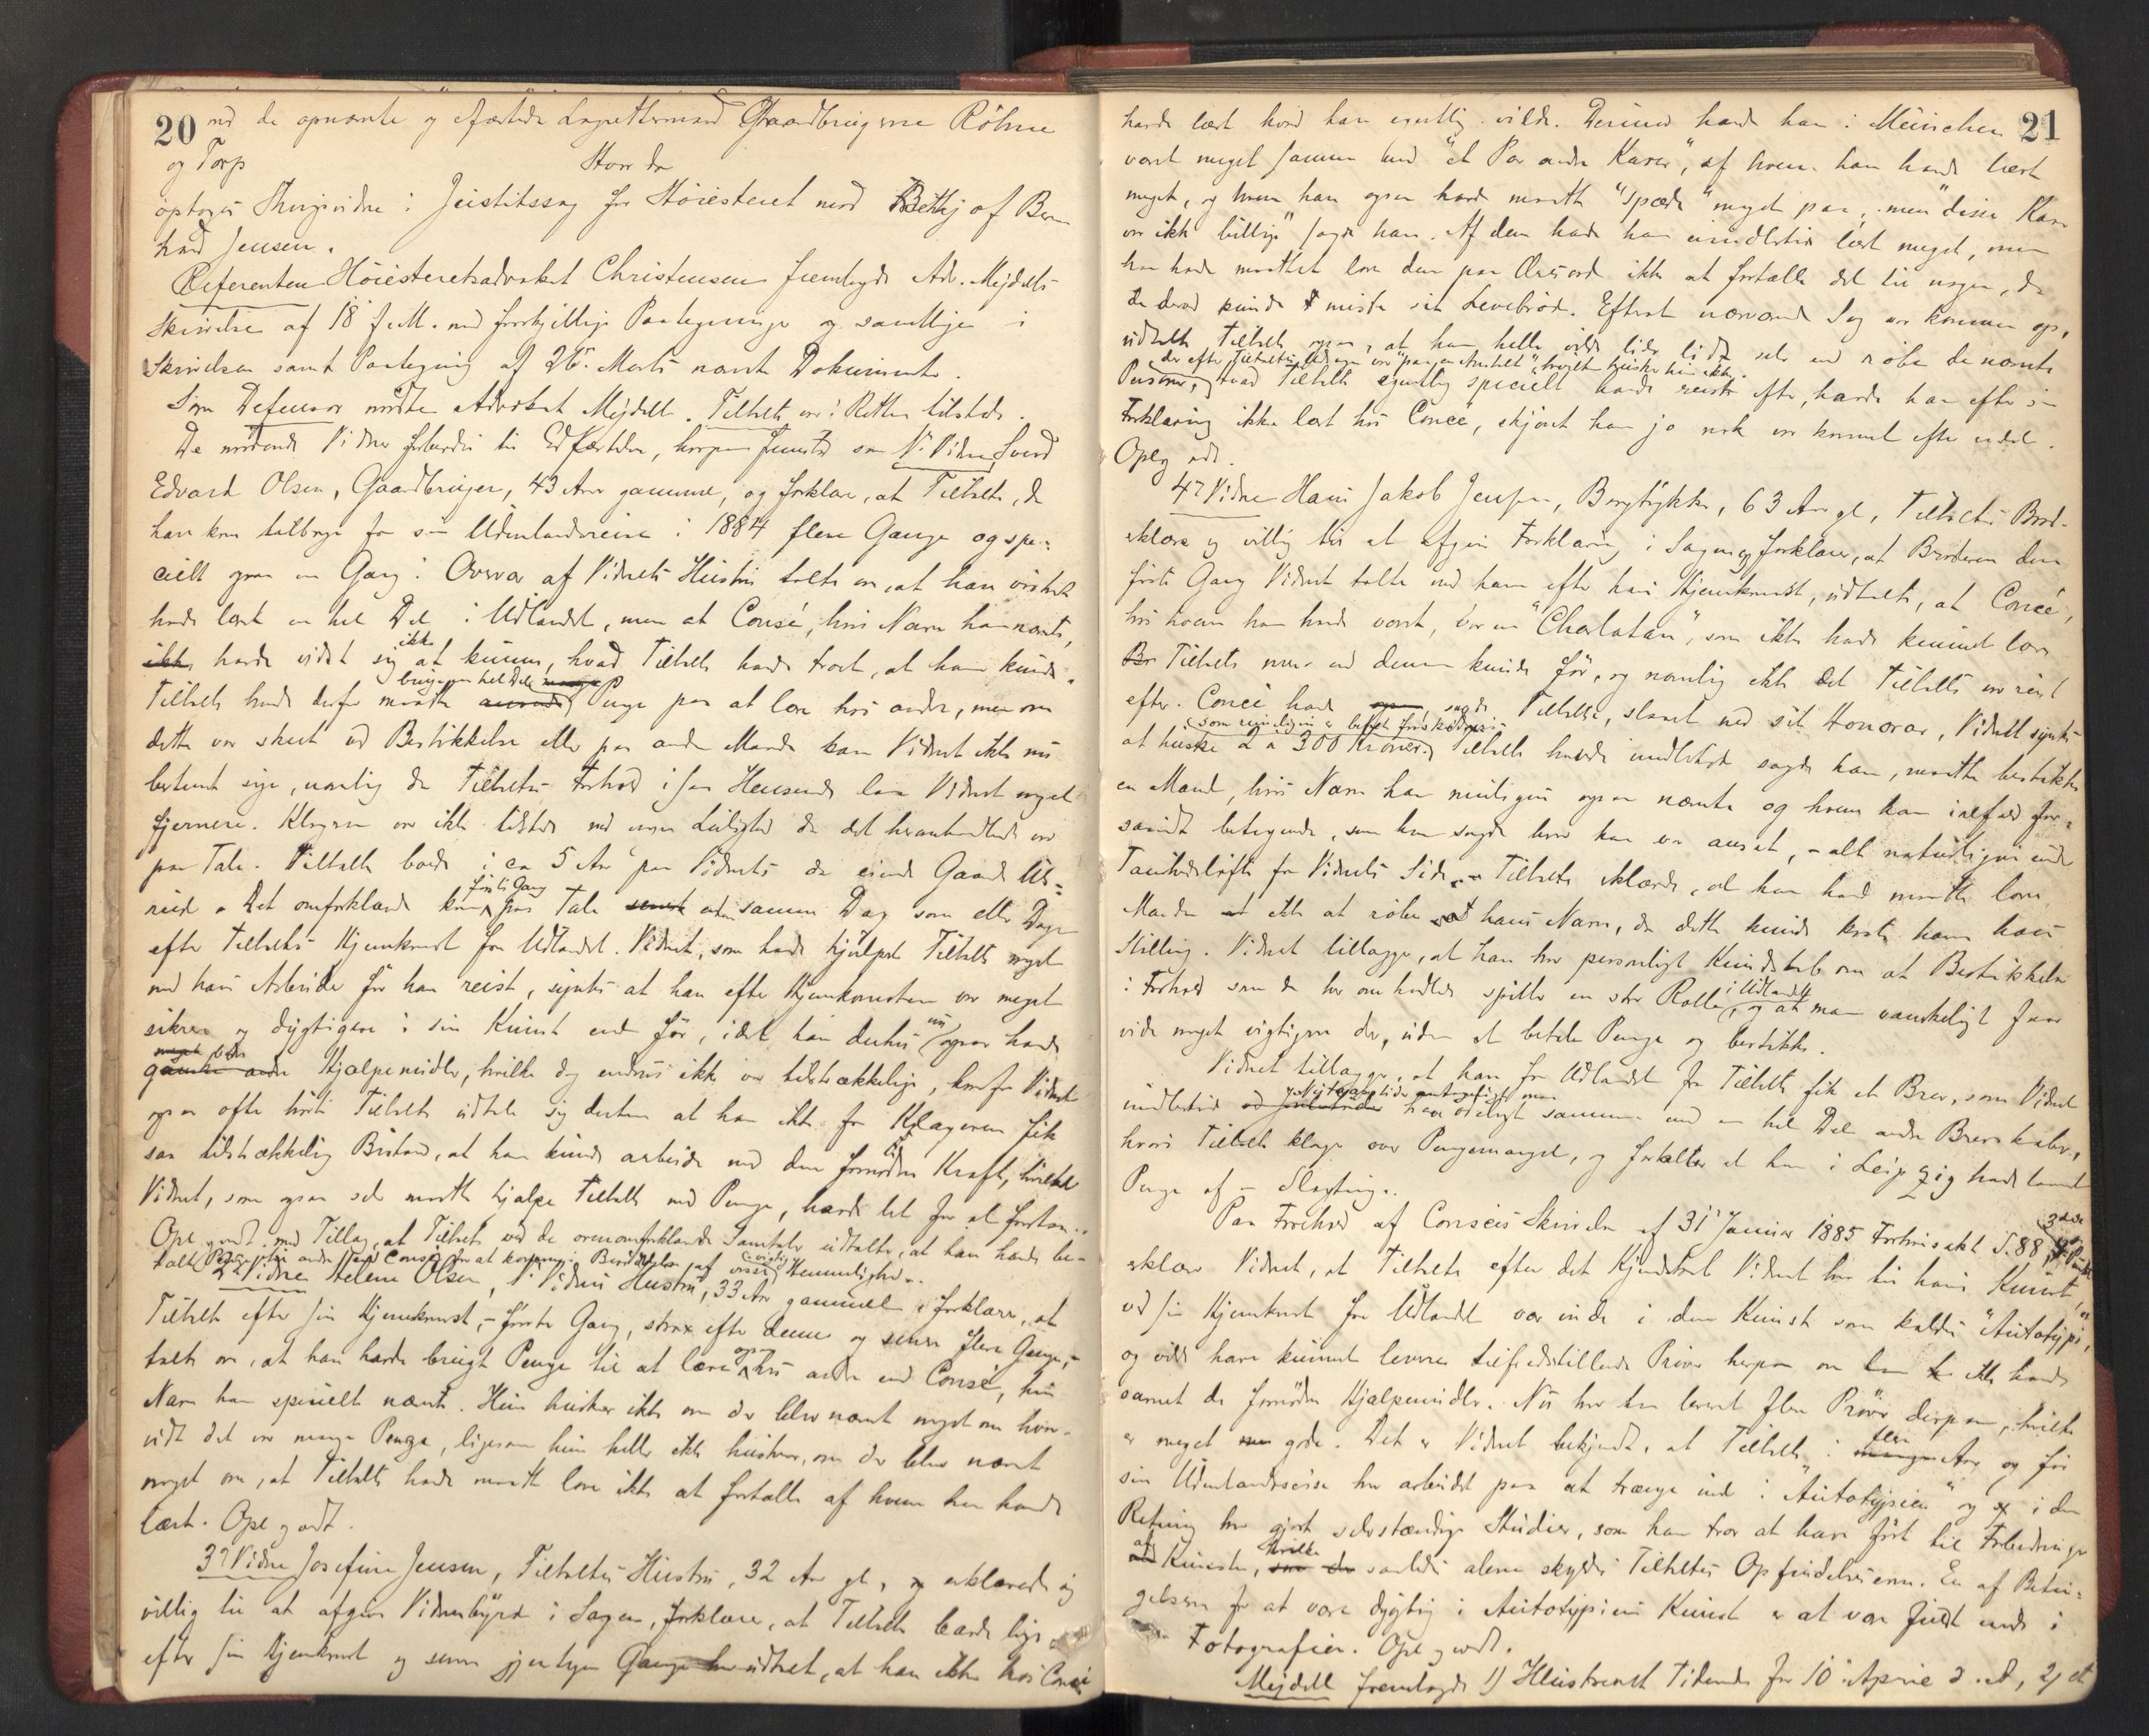 20 med de opnævnte og edfæstede Lagrettemænd Gaardbrugerne Röhne
og Torp
Hvor da
optoges Thingsvidne i Justitssag for Höiesteret mod Betthj af Bern
hard Jensen.
Referenten Höiesteretsadvokat Christensen fremlagde Adv. Mejdells
Skrivelse af 18 f. M. med forskjellige Paategninger og samtlige i
Skrivelsen samt Paategning af 26. Marts nævnte Dokumenter.
Som Defensor mödte Advokat Mejdell. Tiltalte var i Retten tilstede.
De mödende Vidner forberedtes til Edfæstelse, hvorpaa fremstod som 1. Vidne Svend
Edvard Olsen, Gaardbruger, 43 Aar gammel, og forklarer, at Tiltalte, da
han kom tilbage fra sin Udenlandsreise i 1884 flere Gange og spe-
cielt ogsaa en Gang i Overvær af Vidnets Hustru talte om, at han vistnok
havde lært en hel Del i Udlandet, men at Consé, hvis Navn han nævnte,
ikke havde vidst sig ikke at kunne, hvad Tiltalte havde troet, at han kunde.
Tiltalte havde derfor maattet bruge en hel Del Penge paa at lære hos andre, men om
dette var skeet ved Bestikkelse eller paa anden Maade kan Vidnet ikke nu
bestemt sige, navnlig da Tiltaltes Forhold i saa Henseende laa Vidnet meget
fjernere. Klageren var ikke tilstede ved nogen Leilighed da det heromhandlede var
paa Tale. Tiltalte boede i ca 5 Aar paa Vidnets da eiende Gaard Ul-
rud. Det omforklarede kom förste Gang paa Tale enten samme Dag som eller Dagen
efter Tiltaltes Hjemkomst fra Udlandet. Vidnet, som havde hjulpet Tiltalte meget
med hans Arbeide för han reiste, syntes at han efter Hjemkomsten var meget
sikrere og dygtigere i sin Kunst end för, idet han desuden nu ogsaa havde
meget bedre Hjælpemidler, hvilke dog endnu ikke var tilstrækkelige, hvorfor Vidnet
ogsaa ofte hörte Tiltalte udtale sig derhen at han ikke fra Klageren fik
saa tilstrækkelig Bistand, at han kunde arbeide med den fornödne Kraft, hvilket
Vidnet, som ogsaa selv maatte hjælpe Tiltalte med Penge, havde let for at forstaa.
Opl. og vedt. med Tillæg, at Tiltalte ved de ovenomforklarede Samtaler udtalte, at han havde be-
talt Penge til andre end Consé for at komme i Besiddelse af visse vigtige Hemmeligheder.
2. Vidne Helene Olsen, 1. Vidnes Hustru, 33 Aar gammel, forklarer, at
Tiltalte efter sin Hjemkomst, förste Gang, strax efter denne og senere flere Gange,
talte om, at han havde brugt Penge til at lære ogsaa hos andre end Consé, hvis
Navn han specielt nævnte. Hun husker ikke om der blev nævnt noget om hvor-
vidt det var mange Penge, ligesom hun heller ikke husker, om der blev nævnt
noget om, at Tiltalte havde maattet love ikke at fortælle af hvem han havde
lært. Opl. og vedt.
3. Vidne Josefine Jensen, Tiltaltes Hustru, 32 Aar gl, og erklærede sig
villig til at afgive Vidnesbyrd i Sagen, forklarer, at Tiltalte baade lige
efter sin Hjemkomst og senere gjentagne Gange har udtalt, at han ikke hos Consé
21
havde lært hvad han egentlig vilde. Derimod havde han i München
været meget sammen med "et Par andre Karer", af hvem han havde lært
meget, og hvem han ogsaa havde maattet "spæde" meget paa, men "disse Karer
var ikke billige" sagde han. Af dem havde han imidlertid lært meget, men
han havde maattet love dem paa Æresord ikke at fortælle det til nogen, da
de derved kunde miste sit Levebröd. Efterat nærværende Sag var kommen op,
udtalte Tiltalte ogsaa, at han heller vilde lide lidt selv end röbe de nævnte
Personer, der efter Tiltaltes Udsagn var "paa en Anstalt", hvilken husker hun ikke. Hvad Tiltalte egentlig specielt havde reist efter, havde han efter sin
Forklaring ikke lært hos Concé, skjönt han jo nok var kommet efter endel.
Opl. og vedt.
4. Vidne Hans Jakob Jensen, Bergtykke, 63 Aar gl, Tiltaltes Brod-
erklærer sig villig til at afgive Forklaring i Sagen og forklarer, at Broderen den
förste Gang Vidnet talte med ham efter hans Hjemkomst, udtalte, at Concé,
hos hvem han havde været, var en "Charlatan", som ikke havde kunnet lære
Tiltalte mere end denne kunde för, og navnlig ikke det Tiltalte var reist
efter. Concé havde, sagde Tiltalte, slaaet ned sit Honorar, Vidnet syntes
at huske 2 a 300 Kroner, Tiltalte havde imidlertid sagde han, maattet bestikke
en Mand, hvis Navn han muligens ogsaa nævnte og hvem han ialfald for-
saavidt betegnede, som han sagde hvor han var ansat, - alt naturligvis under
Taushedslöfte fra Vidnets Side. - Tiltalte erklærede, at han havde maattet love
Manden ikke at röbe hans Navn, da dette kunde koste ham hans
Stilling. Vidnet tillægger, at han har personligt Kundskab om at Bestikkelse
i Forhold som de her omhandlede spiller en stor Rolle i Udlandet, og at man vanskeligt faar
vide noget vigtigere der, uden at betale Penge og bestikke.
Vidnet tillægger, at han fra Udlandet fra Tiltalte fik et Brev, som Vidnet
imidlertid ved Nytaarstider antagelig har ödelagt sammen med en hel Del andre Brevskaber,
hvori Tiltalte klager over Pengemangel, og fortalte at han i Leipzig havde laant
Penge af en Slægtning.
Paa Forehold af Consées Skrivelse af 31 Januar 1885 Forhörsakt S. 88, 3die Punkt
erklærer Vidnet, at Tiltalte efter det Kjendskab Vidnet har til hans Kunst,
ved sin Hjemkomst fra Udlandet var inde i den Kunst som kaldes "Autotypi",
og vilde have kunnet levere tilfredsstillende Pröver herpaa om han ikke havde
savnet de fornödne Hjælpemidler. Nu har han leveret flere Pröver derpaa, hvilke
er meget gode. Det er Vidnet bekjendt, at Tiltalte i flere Aar og för
sin Udenlandsreise har arbeidet paa at trænge ind i "Autotypien" og i den
Retning har gjort selvstændige Studier, som han tror at have fört til Forbedringer
af Kunsten, hvilke saaledes alene skyldes Tiltaltes Opfindelsesevne. En af Betin-
gelserne for at være dygtig i Autotypiens Kunst er at være fuldt inde i
Fotografien. Opl. og vedt.
Mejdell fremlagde 1) Illustreret Tidende for 10 April d. A, 2) et